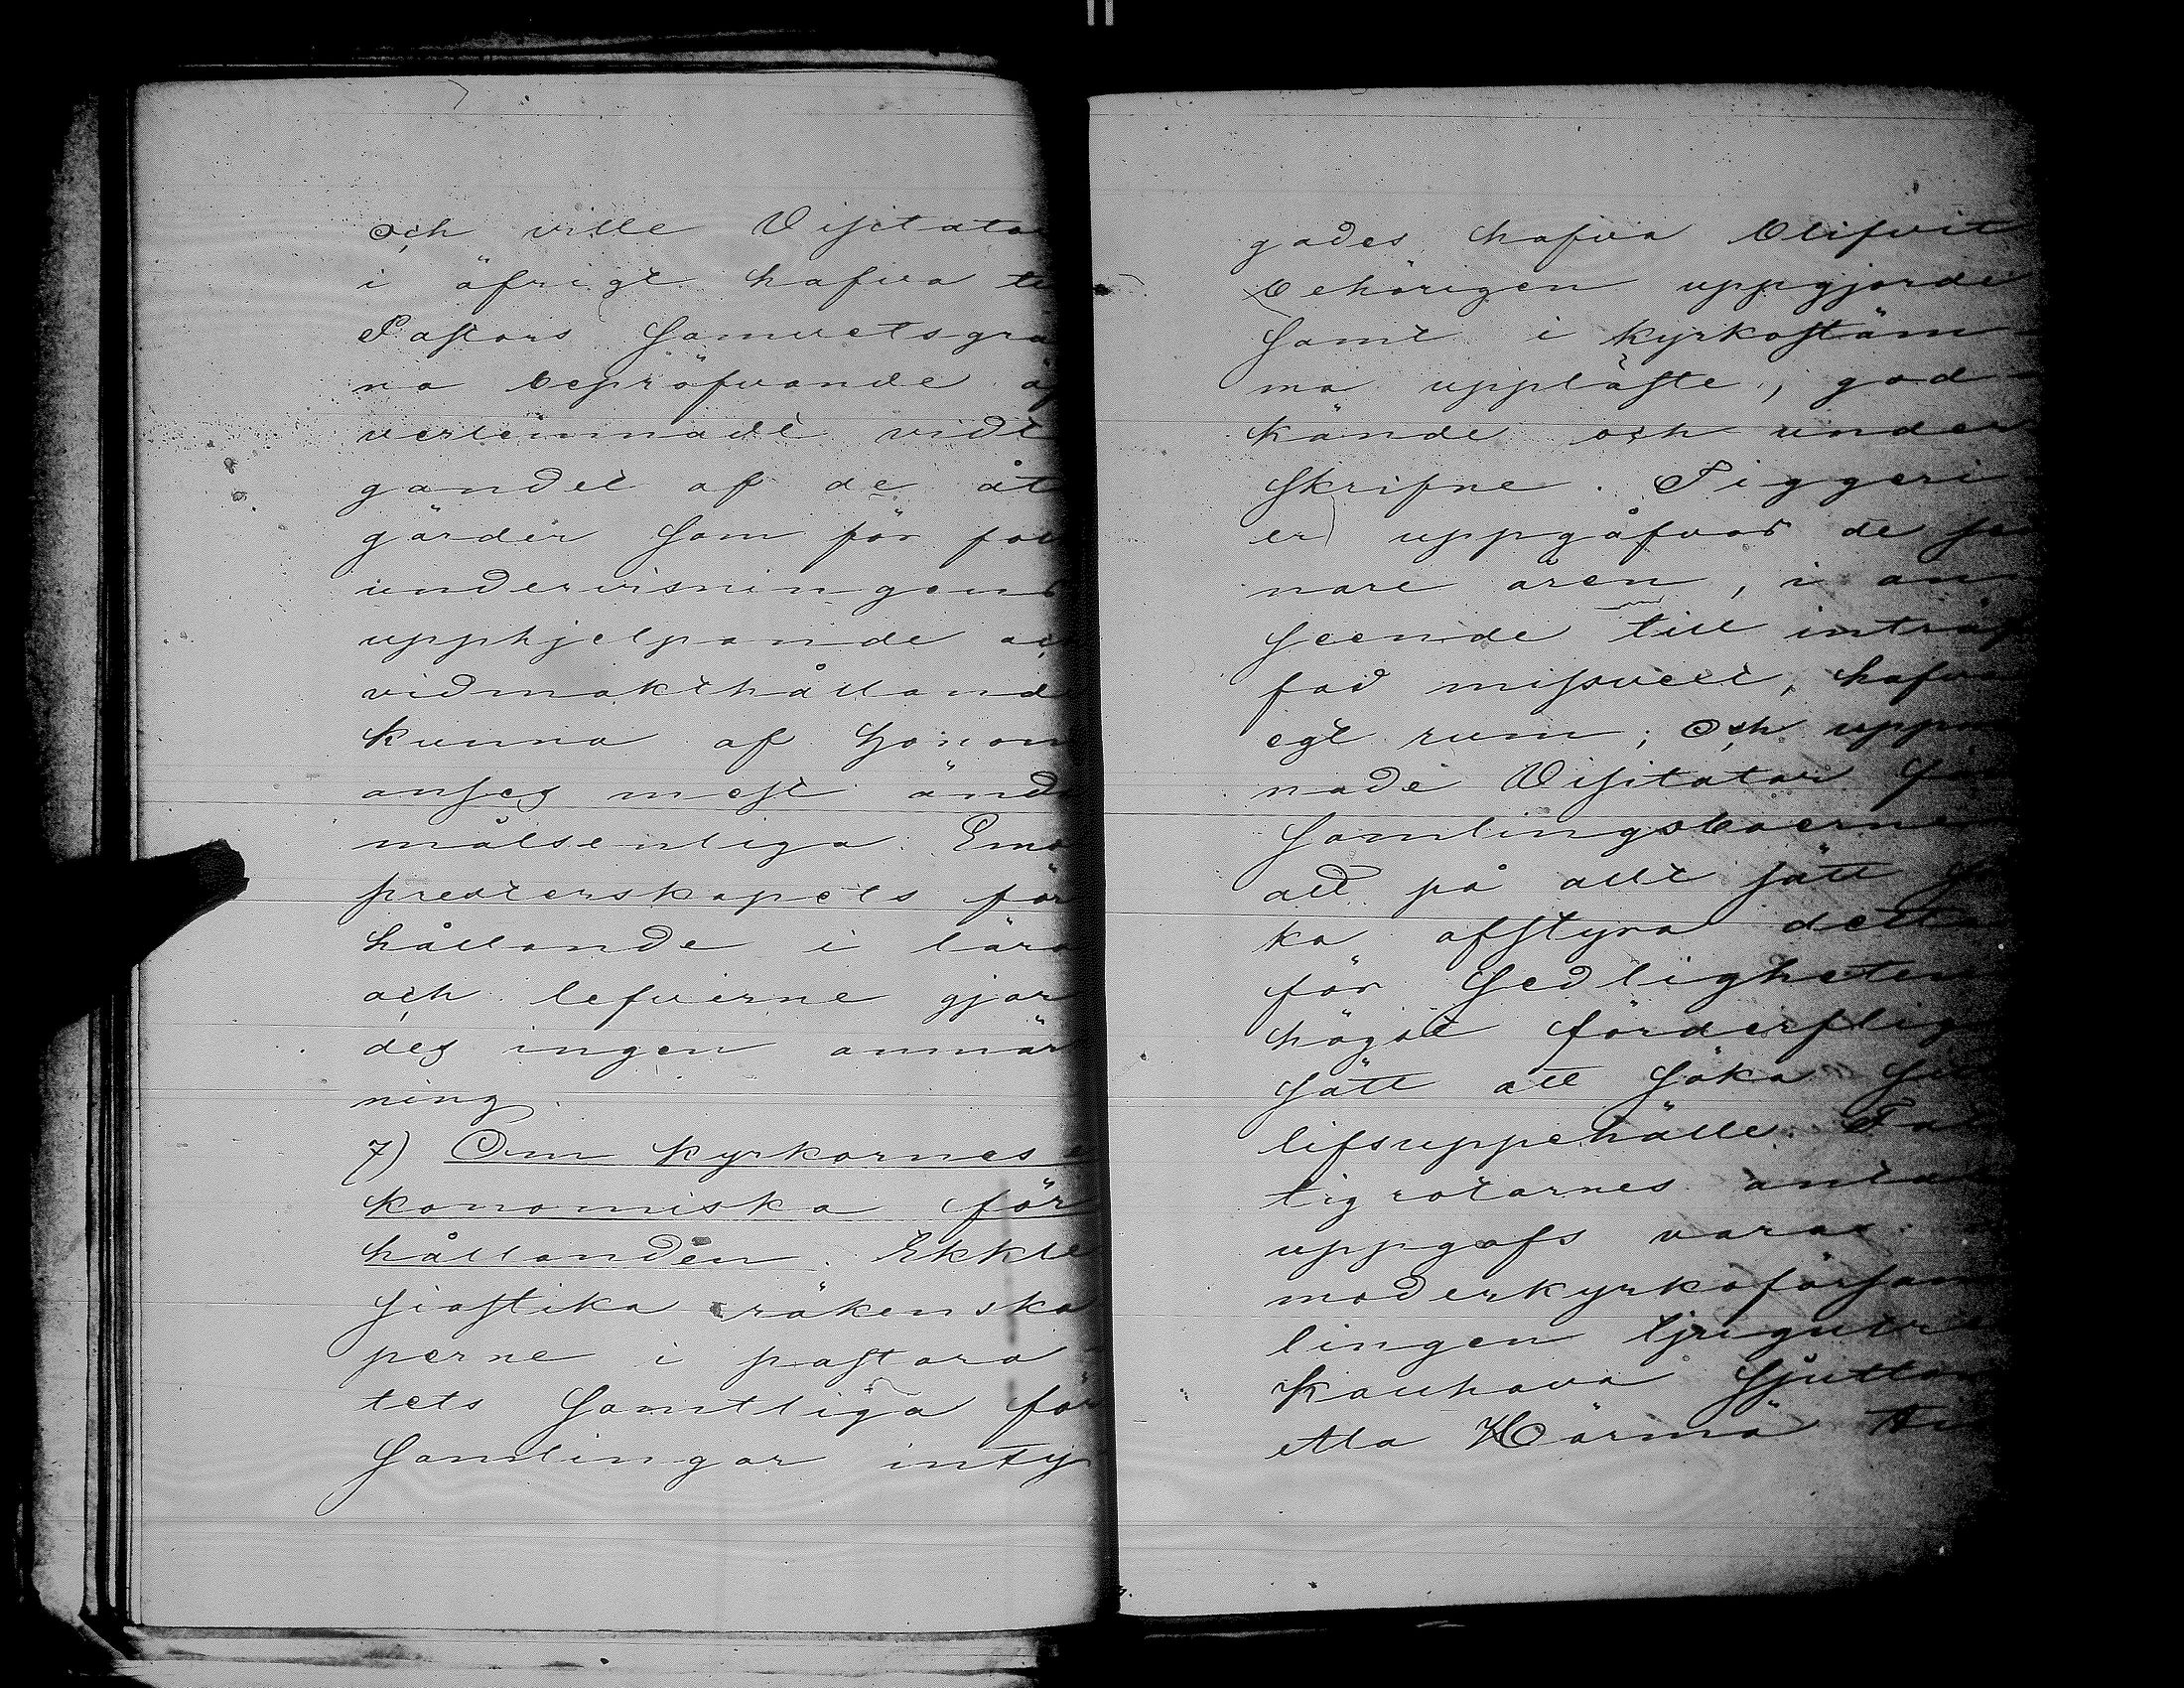 och ville Visitator
i öfrigt hafva til
Pastors samvetsgra
na bepröfvande öf
verlemnadt vidt
gandet af de åt
gärder som för fol
undervisningens
upphjelpande och
vidmakthållande
kunna af honom
anses mest ända
målsenliga. Emo
presterskapets för
hållande i lära
och lefverne gjor
des ingen anmär
ning.
7) Om kyrkornes e
konomiska för
hållanden. Ekkle
siastika räkenska
perne i pastora-
tets samtliga för
samlingar inty
gades hafva blifvit
behörigen uppgjorde
samt i kyrkostäm-
ma uppläste, god-
kände och under
skrifne. Tiggeri
er uppgåfvos de se
nare åren, i an
seende till inträf
fad missvext, hafva
egt rum; och uppma
nade Visitator för
samlingsboerne
att på allt sätt sö
ka afstyra detta
för sedligheten
högst förderflig
sätt att söka sitt
lifsuppehälle. Fat
tigrotarnes antal
uppgafs vara i
moderkyrkoförsam
lingen tjugutre
Kauhava sjutton
etta Härmä ti